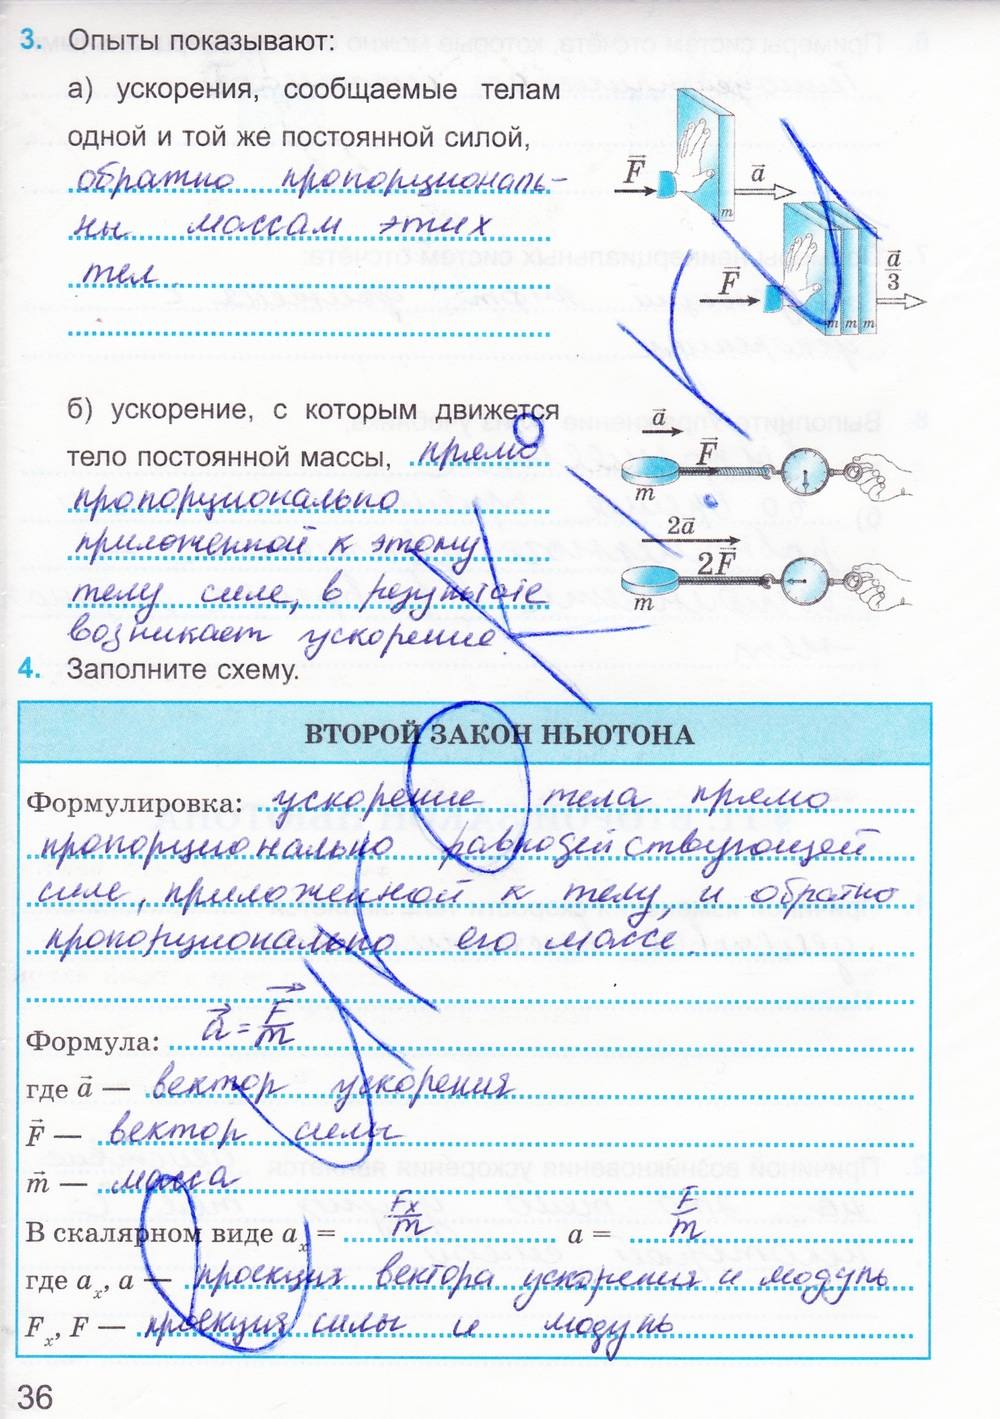 3. Опыты показывают:
а) ускорения, сообщаемые телам
одной и той же постоянной силой,
обратно пропорциональ-
ны массам этих
тел
F a
m
F a/3
m m m
б) ускорение, с которым движется
тело постоянной массы, прямо
пропорционально
приложенной к этому
телу силе, в результате
возникает ускорение.
a
F
m
2a
2F
m
4. Заполните схему.
ВТОРОЙ ЗАКОН НЬЮТОНА
Формулировка: ускорение тела прямо
пропорционально равнодействующей
силе, приложенной к телу, и обратно
пропорционально его массе.
Формула: a = F/m
где a — вектор ускорения
F — вектор силы
m — масса
В скалярном виде aₓ = Fx/m a = F/m
где aₓ, a — проекция вектора ускорения и модуль
Fₓ, F — проекция силы и модуль
36